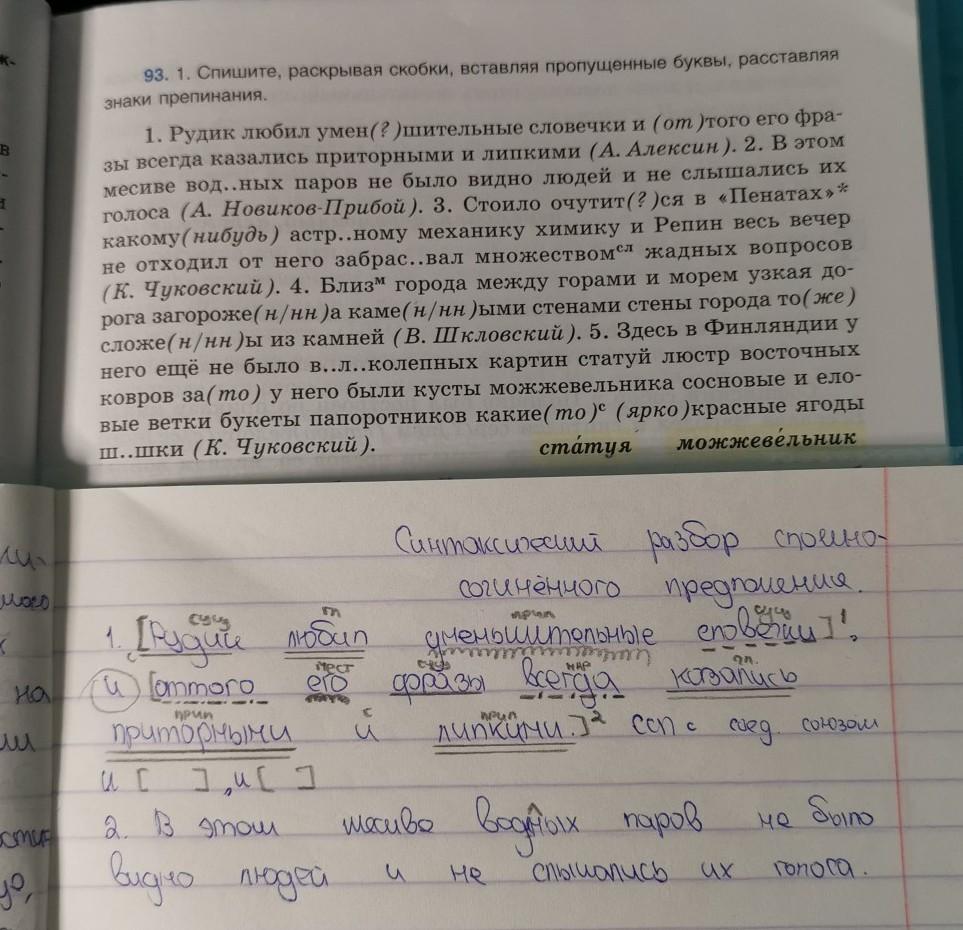 93. 1. Спишите, раскрывая скобки, вставляя пропущенные буквы, расставляя
знаки препинания.
1. Рудик любил умен(?)шительные словечки и (от)того его фра-
зы всегда казались приторными и липкими (А. Алексин). 2. В этом
месиве вод..ных паров не было видно людей и не слышались их
голоса (А. Новиков-Прибой). 3. Стоило очутит(?)ся в «Пенатах»*
какому(нибудь) астр..ному механику химику и Репин весь вечер
не отходил от него забрас..вал множествомсл жадных вопросов
(К. Чуковский). 4. Близм города между горами и морем узкая до-
рога загороже(н/нн)а каме(н/нн)ыми стенами стены города то(же)
сложе(н/нн)ы из камней (В. Шкловский). 5. Здесь в Финляндии у
него ещё не было в..л..колепных картин статуй люстр восточных
ковров за(то) у него были кусты можжевельника сосновые и ело-
вые ветки букеты папоротников какие(то)с (ярко)красные ягоды
ш..шки (К. Чуковский).
ста́туя можжеве́льник
Синтаксический разбор сложно-
сочинённого предложения.
сущ гл прил сущ
1. [Рудик любил уменьшительные словечки]1,
с мест сущ нар гл.
и [оттого его фразы всегда казались
прил с прил
приторными и липкими.]2 ссп с соед. союзом
и [ ], и [ ]
2. В этом месиве водных паров не было
видно людей и не слышались их голоса.